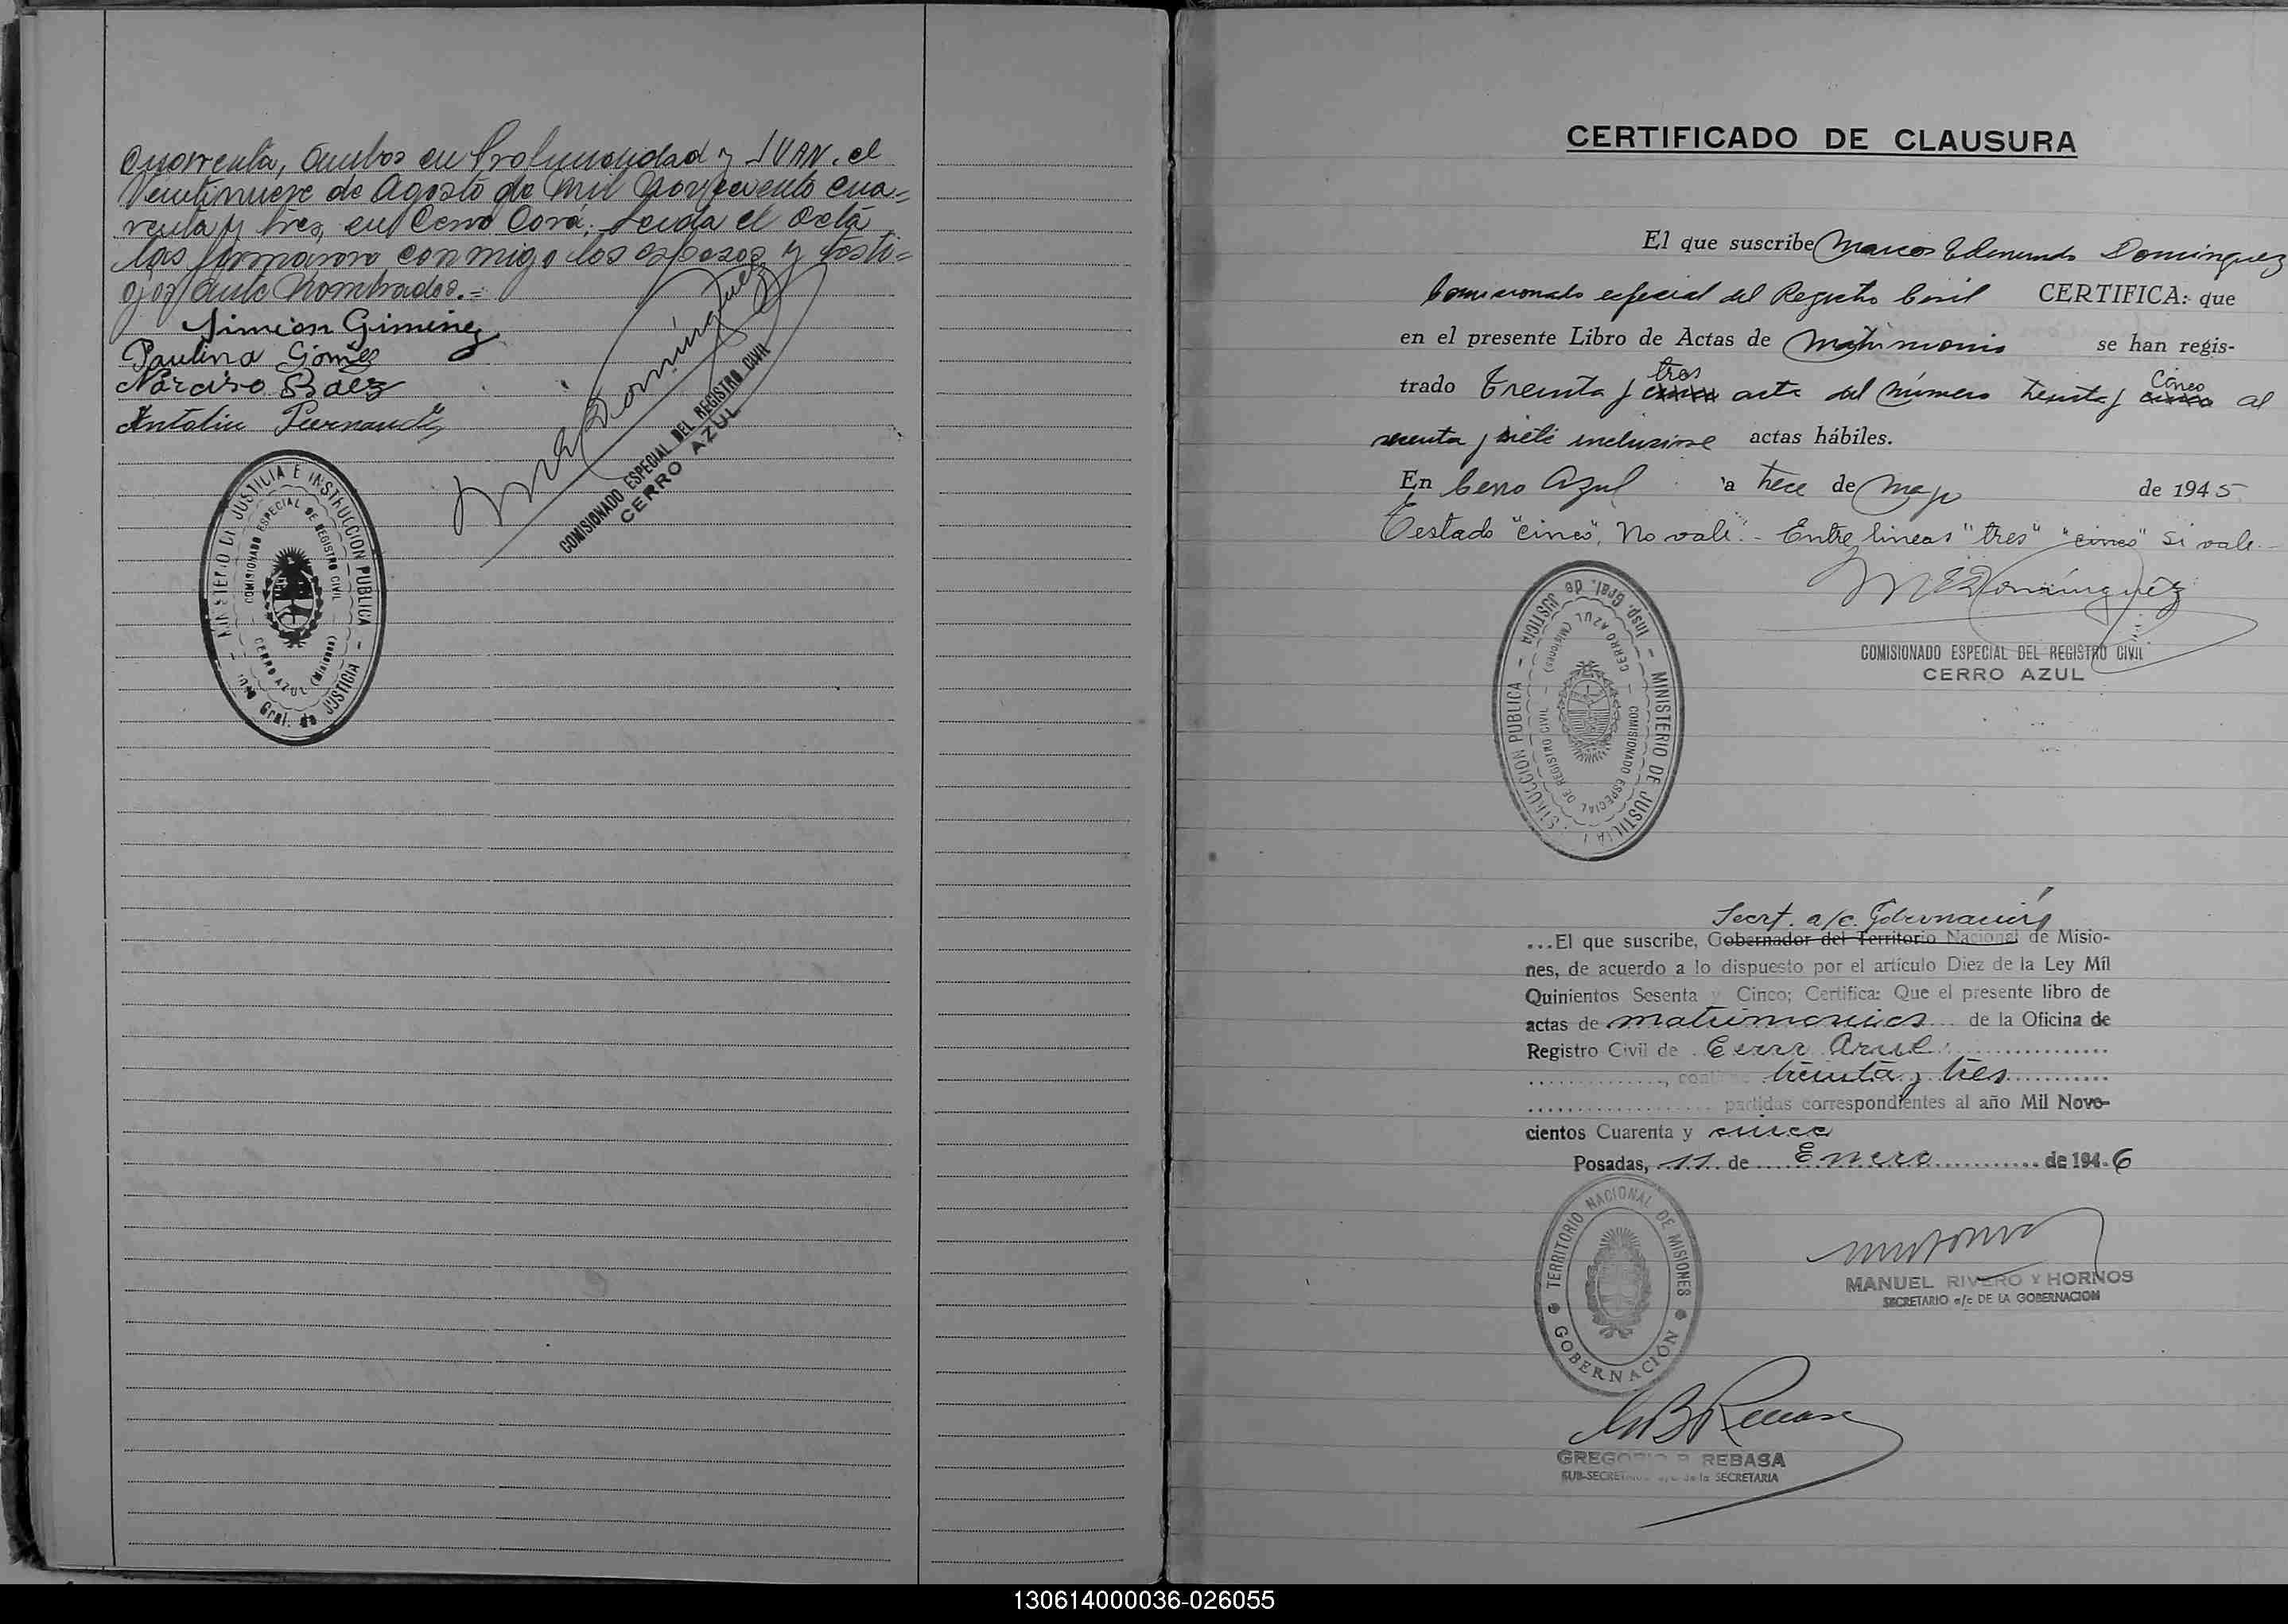 Cuarenta, Ambos en Profundidad y JUAN, el
Veintinueve de Agosto de Mil Novecientos cua=
renta y tres, en Cerro Corá; Leída el Acta
las firmaron conmigo los esposos y testi=
gos ante Nombrados.=
Simeon Gimenez
Paulina Gómez
Narciso Baez
Antolin Fernandez
M E Domínguez
COMISIONADO ESPECIAL DEL REGISTRO CIVIL
CERRO AZUL
MINISTERIO DE JUSTICIA E INSTRUCCION PUBLICA
Insp. Gral. de JUSTICIA
COMISIONADO ESPECIAL DE REGISTRO CIVIL
CERRO AZUL (Misiones)
CERTIFICADO DE CLAUSURA
El que suscribe Marcos Edmundo Dominguez
Comisionado especial del Registro Civil CERTIFICA: que
en el presente Libro de Actas de Matrimonio se han regis-
tres Cinco
trado Treinta y cinco acta del número treinta y cinco al
sesenta y siete inclusive actas hábiles.
En Cerro Azul a trece de Mayo de 1945
Testado "cinco", No vale".- Entre lineas "tres" "cinco" Si vale.-
M E Domínguez
COMISIONADO ESPECIAL DEL REGISTRO CIVIL
CERRO AZUL
Insp. Gral. de JUSTICIA - MINISTERIO DE JUSTICIA INSTRUCCION PUBLICA
CERRO AZUL (Misiones) - COMISIONADO ESPECIAL DE REGISTRO CIVIL
Secrt. a/c. Gobernación
...El que suscribe, Gobernador del Territorio Nacional de Misio-
nes, de acuerdo a lo dispuesto por el artículo Diez de la Ley Mil
Quinientos Sesenta y Cinco; Certifica: Que el presente libro de
actas de matrimonios de la Oficina de
Registro Civil de Cerro Azul
treinta y tres
partidas correspondientes al año Mil Nove-
cientos Cuarenta y cinco
Posadas, 11 de Enero de 194-6
TERRITORIO NACIONAL DE MISIONES
GOBERNACIÓN
MANUEL RIVERO Y HORNOS
SECRETARIO a/c DE LA GOBERNACION
GREGORIO B. REBASA
SUB-SECRETARIO a/c de la SECRETARIA
130614000036-026055